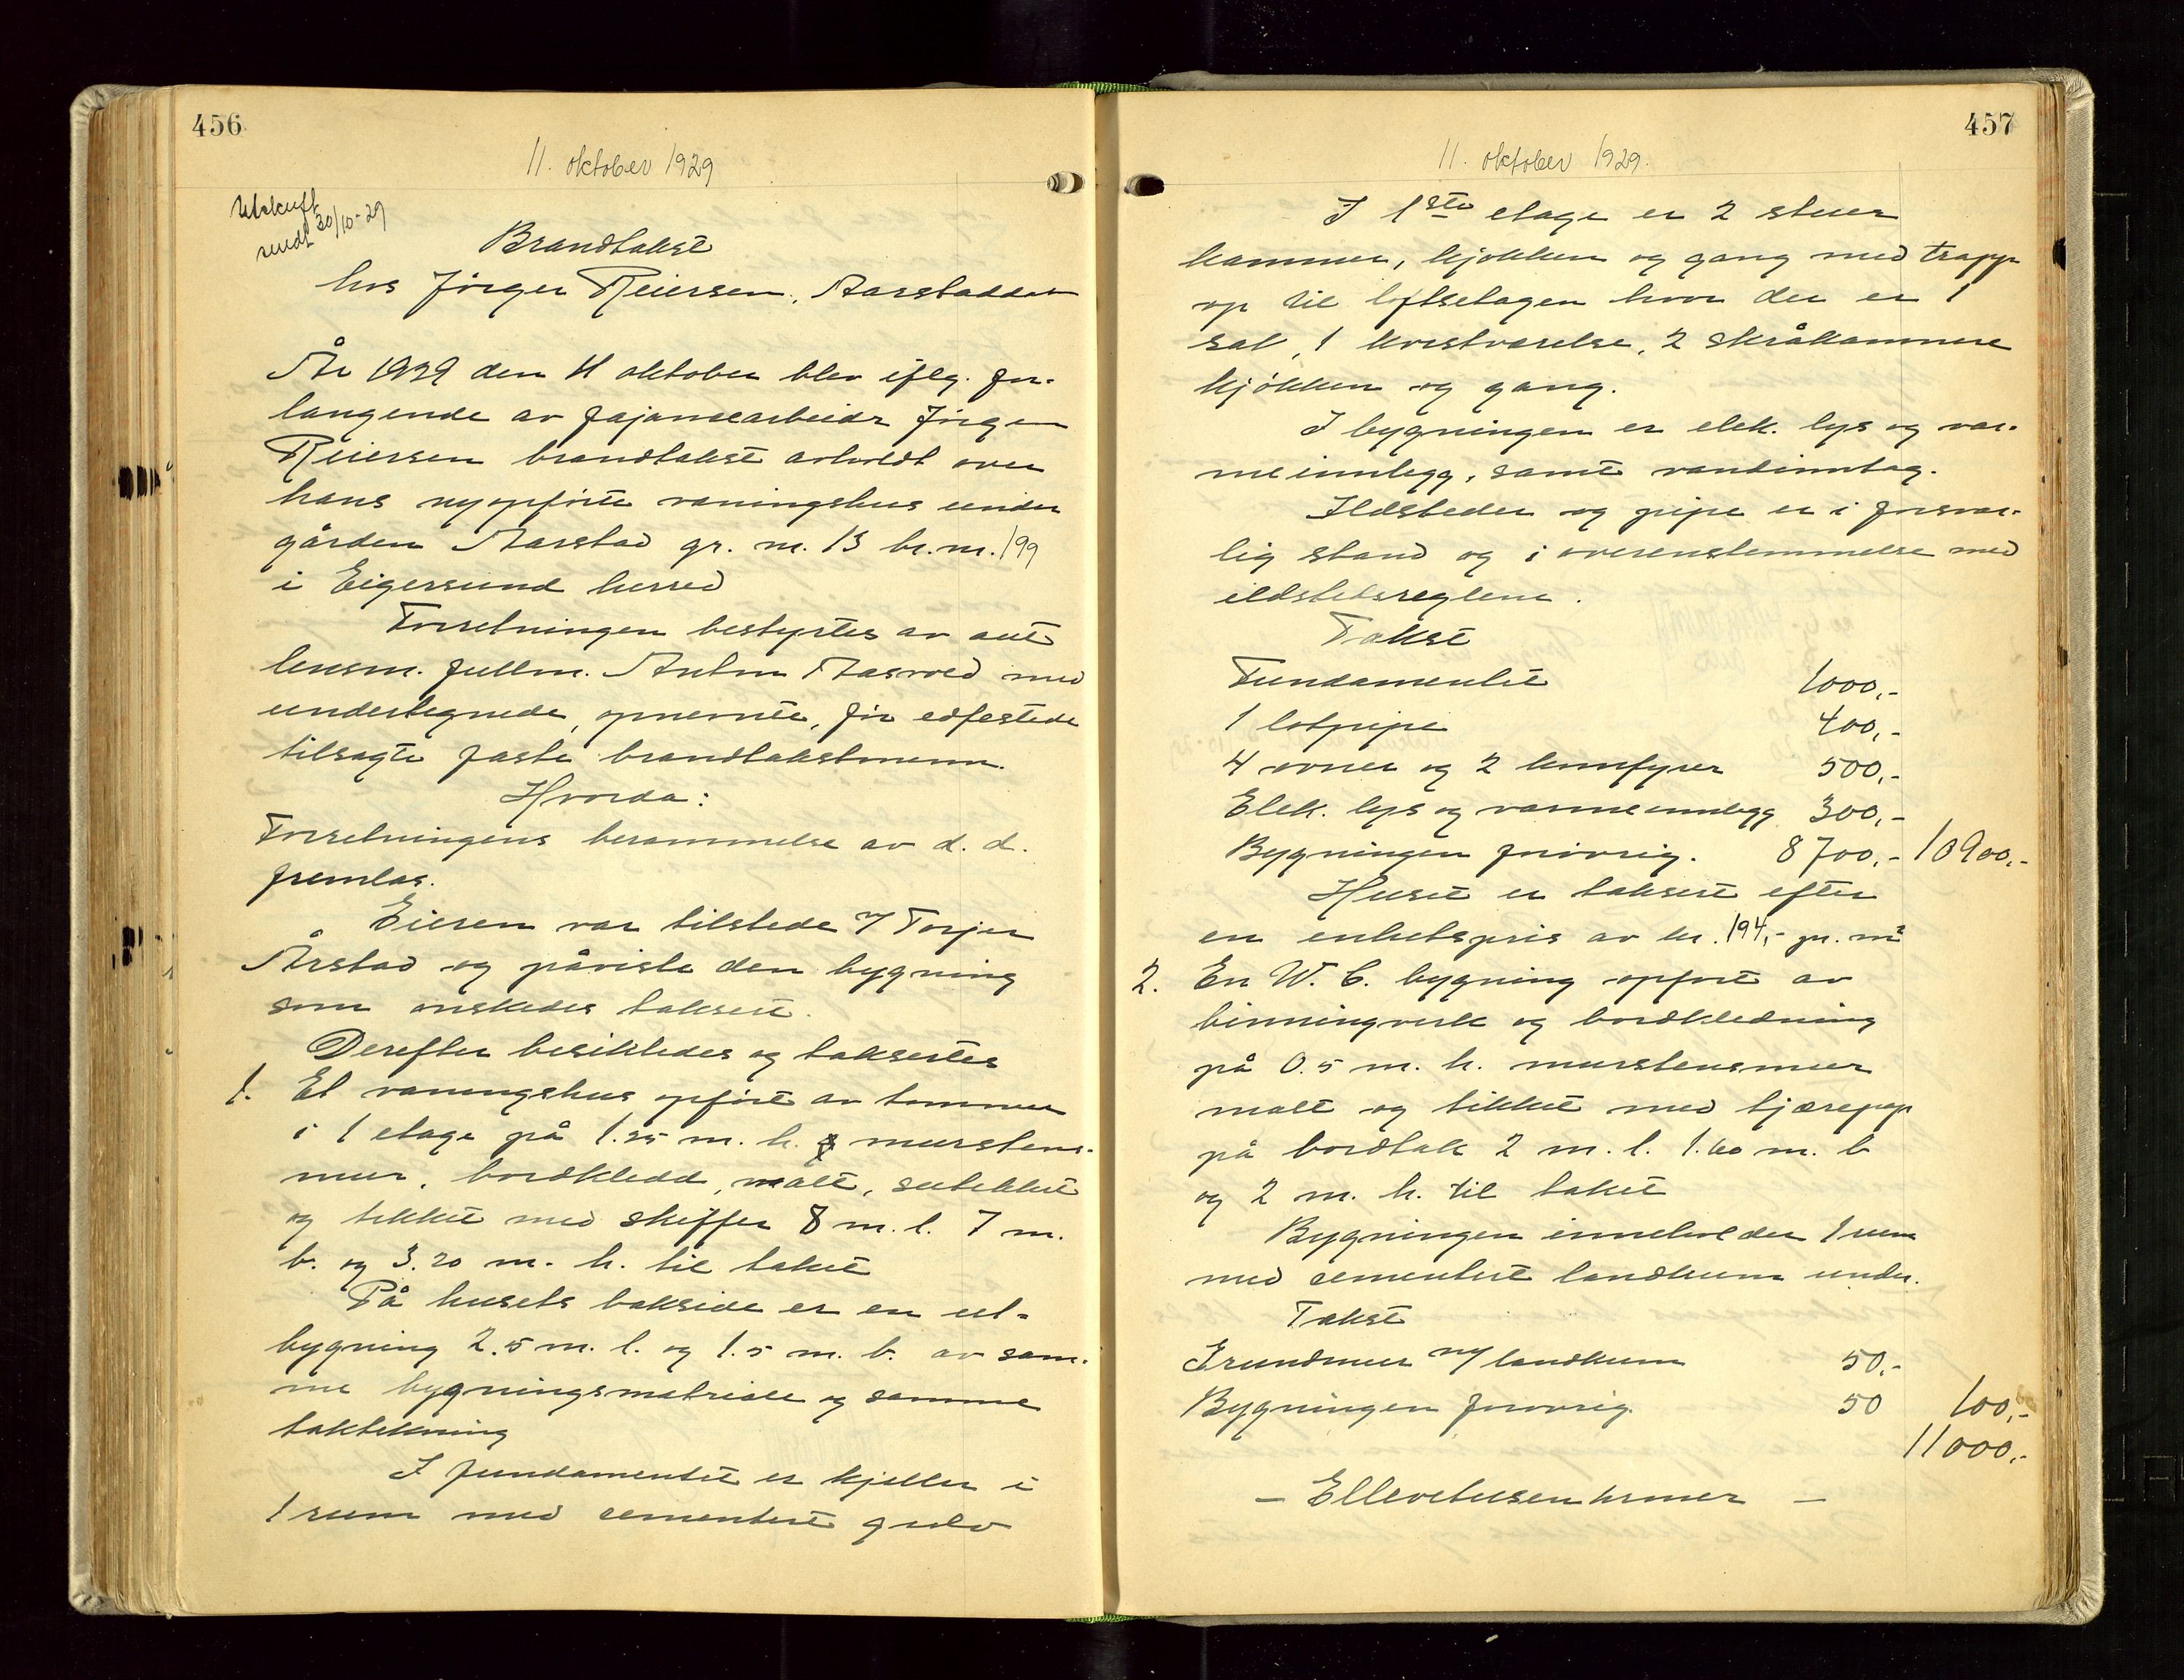 456
11. oktober 1929
Utskrift
sendt 30/10-29
Brandtakst
hos Jörgen Reiersen, Aarstaddalen
År 1929 den 11 oktober blev iflg. for-
langende av fajansearbeider Jörgen
Reiersen brandtakst avholdt over
hans nyopförte våningshus under
gården Aarstad gr. nr. 13 br. nr. 199
i Eigersund herred
Forretningen bestyrtes av aut
lensm. fullm. Anton Aasved med
undertegnede, opnevnte, för edfestede
tilsagte faste brandtakstmenn.
Hvorda:
Forretningens berammelse av d. d.
fremlas.
Eieren var tilstede m/ Torjer
Årstad og påviste den bygning
som önskedes taksert.
Derefter besiktedes og taksertes
1. Et våningshus opfört av tømmer
i 1 etage på 1.25 m. h. murstens-
mur, bordkledd, malt, sutekket
og tekket med skiffer 8 m. l. 7 m.
b. og 3.20 m. h. til taket
På husets bakside er en ut-
bygning 2.5 m. l. og 1.5 m. b. av sam-
me bygningsmatriale og samme
taktekning
I fundamentet er kjeller i
1 rum med cementert gulv
457
11. oktober 1929.
I 1ste etage er 2 stuer
kammer, kjøkken og gang med trapp
op til loftsetagen hvor der er 1
sal, 1 kvistværelse, 2 skråkammere
kjökken og gang.
I bygningen er elek. lys og var-
meinnlegg, samt vandinntag.
Ildsteder og pipe er i forsvar-
lig stand og i overenstemmelse med
ildstedsreglene.
Takst
Fundamentet 1000,-
1 lodpipe 400,-
4 ovner og 2 komfyrer 500,-
Elek. lys og varmeinnlegg 300,-
Bygningen forövrig. 8700,- 10900,-
Huset er taksert efter
en enhetspris av kr. 194,- pr. m²
2. En W. C. bygning opført av
binningverk og bordkledning
på 0.5 m. h. murstensmur
malt og tekket med tjærepap
på bordtak 2 m. l. 1.60 m. b
og 2 m. h. til taket
Bygningen inneholder 1 rum
med cementert landkum under.
Takst
Grundmur m/ landkum 50,-
Bygningen forövrig. 50 100,-
11000,-
— Ellevetusen kroner —